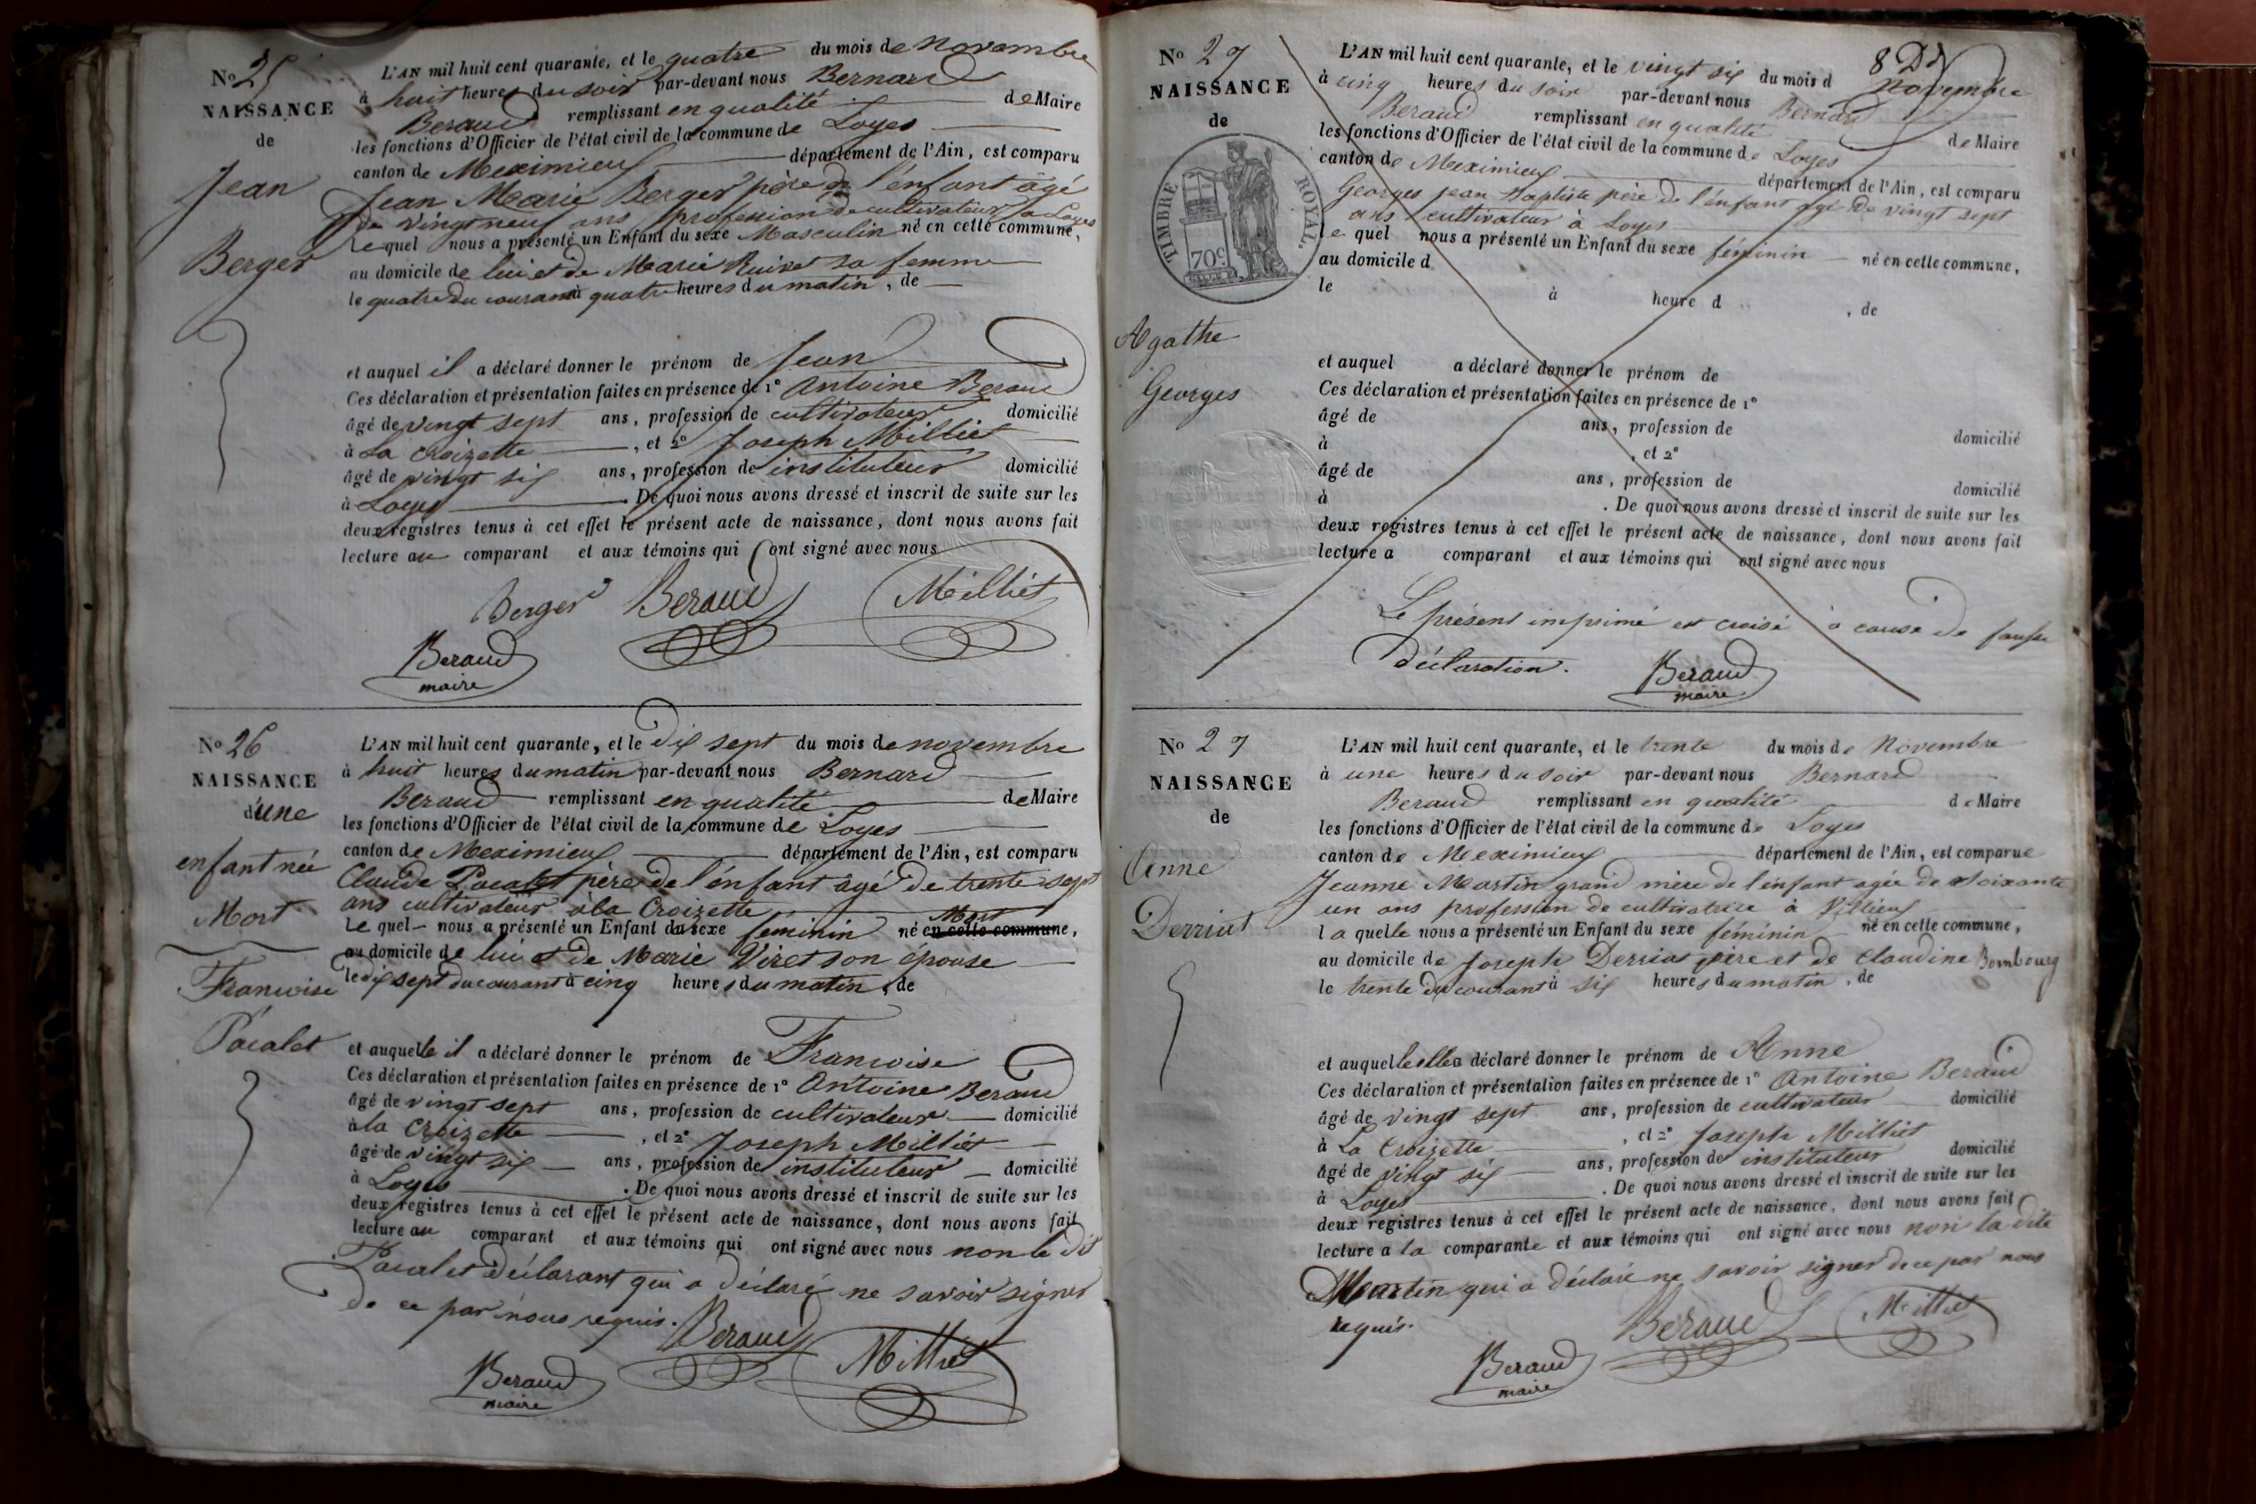 No 25
NAISSANCE
de
Jean
Berger
L'AN mil huit cent quarante, et le quatre du mois de novembre
à huit heures du soir par-devant nous Bernard
Beraud remplissant en qualité de Maire
les fonctions d'Officier de l'état civil de la commune de Loyes
canton de Meximieux département de l'Ain, est comparu
Jean Marie Berger père de l'énfant âgé
de vingt neuf ans profession de cultivateur à Loyes
le quel nous a présenté un Enfant du sexe Masculin né en cette commune,
au domicile de lui et de Marie sa femme
le quatre du courant à quatre heures du matin, de
et auquel il a déclaré donner le prénom de Jean
Ces déclaration et présentation faites en présence de 1° Antoine Beraud
âgé de vingt sept ans, profession de cultivateur domicilié
à La Croizette, et 2° Joseph Milliet
âgé de vingt six ans, profession de instituteur domicilié
à Loyes. De quoi nous avons dressé et inscrit de suite sur les
deux registres tenus à cet effet le présent acte de naissance, dont nous avons fait
lecture au comparant et aux témoins qui ont signé avec nous
Berger Beraud Milliet
Beraud
maire
No 26
NAISSANCE
d'une
enfant née
Mort
Francoise
Pacalet
L'AN mil huit cent quarante, et le dix sept du mois de novembre
à huit heures du matin par-devant nous Bernard
Beraud remplissant en qualité de Maire
les fonctions d'Officier de l'état civil de la commune de Loyes
canton de Meximieux département de l'Ain, est comparu
Claude Pacalet père de l'énfant âgé de trente sept
ans cultivateur à la Croizette
Le quel nous a présenté un Enfant du sexe féminin né Mort en cette commune,
au domicile de lui et de Marie Viret son épouse
le dix sept du courant à cinq heures du matin, de
et auquelle il a déclaré donner le prénom de Francoise
Ces déclaration et présentation faites en présence de 1° Antoine Beraud
âgé de vingt sept ans, profession de cultivateur domicilié
à la Croizette, et 2° Joseph Milliet
âgé de vingt six ans, profession de instituteur domicilié
à Loyes. De quoi nous avons dressé et inscrit de suite sur les
deux registres tenus à cet effet le présent acte de naissance, dont nous avons fait
lecture au comparant et aux témoins qui ont signé avec nous non le dit
Pacalet déclarant qui a déclaré ne savoir signer
de ce par nous requis.
Beraud Milliet
Beraud
maire
8 Dre
No 27
NAISSANCE
de
TIMBRE ROYAL.
70c
Agathe
Georges
L'AN mil huit cent quarante, et le vingt six du mois d novembre
à cinq heures du soir par-devant nous Bernard
Beraud remplissant en qualité de Maire
les fonctions d'Officier de l'état civil de la commune de Loyes
canton de Meximieux département de l'Ain, est comparu
Georges jean Baptiste père de l'énfant agé de vingt sept
ans cultivateur à Loyes
le quel nous a présenté un Enfant du sexe féminin né en cette commune,
au domicile d
le à heure d, de
et auquel a déclaré donner le prénom de
Ces déclaration et présentation faites en présence de 1°
âgé de ans, profession de domicilié
à, et 2°
âgé de ans, profession de domicilié
à. De quoi nous avons dressé et inscrit de suite sur les
deux registres tenus à cet effet le présent acte de naissance, dont nous avons fait
lecture a comparant et aux témoins qui ont signé avec nous
Le présent imprimé est croisé à cause de fausse
déclaration.
Beraud
maire
No 27
NAISSANCE
de
Anne
Derriat
L'AN mil huit cent quarante, et le trente du mois de Novembre
à une heures du soir par-devant nous Bernard
Beraud remplissant en qualité de Maire
les fonctions d'Officier de l'état civil de la commune de Loyes
canton de Meximieux département de l'Ain, est comparue
Jeanne Martin grand mère de l'énfant agée de soixante
un ans profession de cultivatrice à Villieux
la quelle nous a présenté un Enfant du sexe féminin né en cette commune,
au domicile de Joseph Derriat père et de Claudine Bombourg
le trente du courant à six heures du matin, de
et auquelle elle a déclaré donner le prénom de Anne
Ces déclaration et présentation faites en présence de 1° Antoine Beraud
âgé de vingt sept ans, profession de cultivateur domicilié
à La Croizette, et 2° Joseph Milliet
âgé de vingt six ans, profession de instituteur domicilié
à Loyes. De quoi nous avons dressé et inscrit de suite sur les
deux registres tenus à cet effet le présent acte de naissance, dont nous avons fait
lecture a la comparante et aux témoins qui ont signé avec nous non la dite
Martin qui a déclaré ne savoir signer de ce par nous
requis.
Beraud Milliet
Beraud
maire